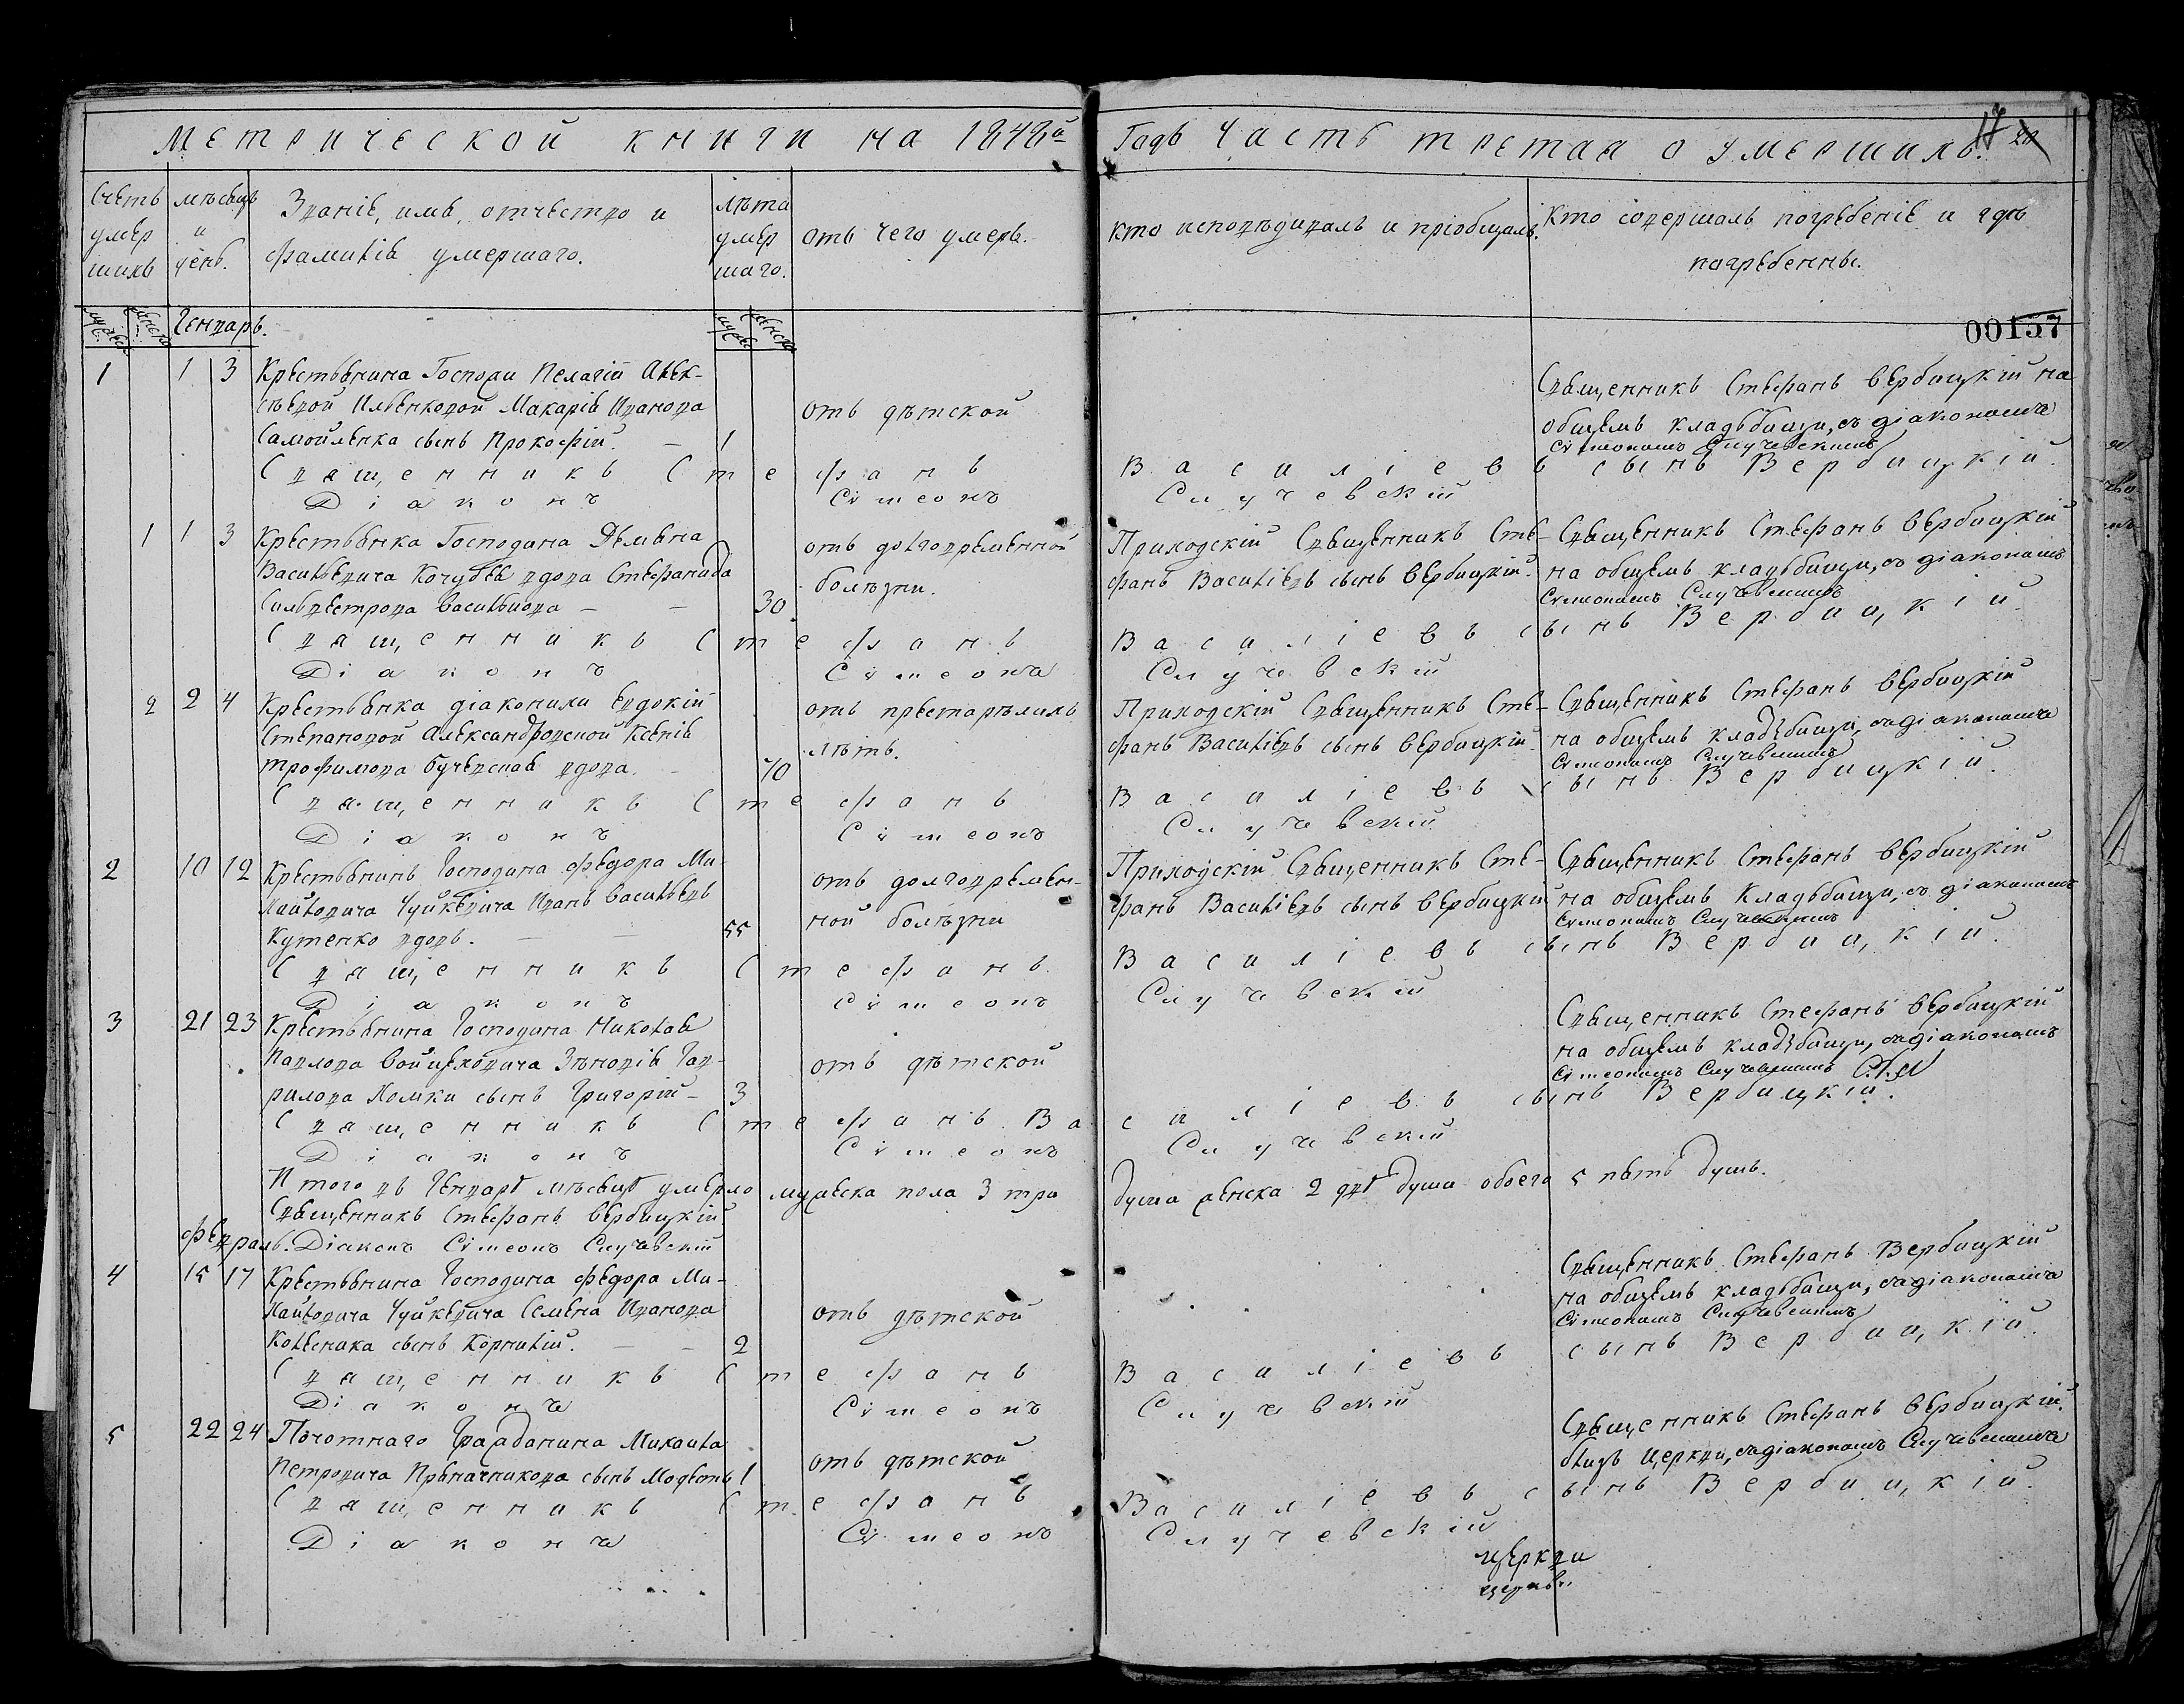 Метрической книги на 1848й Годъ Часть третая о умершихъ.
17
Счетъ умер шихъ
мѣсецъ и день.
Званіе, имя, отчество и фамилія умершаго.
лѣта умер шаго.
отъ чего умеръ.
кто исповѣдивалъ и пріобщалъ.
кто совершалъ погребеніе и гдѣ погребенны.
Генварь.
00157
1 1 3 Крестьянина Госпожи Пелагіи Алек-
сѣевой Ильенковой Макарія Иванова
Самойленка сынъ Прокофій. — 1
отъ дѣтской
Священникъ Стефанъ Вербицкій на
общемъ кладьбищи, съ діакономъ
Сѵмеономъ Случевскимъ
Священникъ Стефанъ Василіевъ сынъ Вербицкій.
Діаконъ Сѵмеонъ Случевскій
1 1 3 Крестьянка Господина Демяна
Васильевича Кочубея вдова Стефанида
Сильвестрова Васильцова — — 30.
отъ долговременной
болѣзни.
Приходскій Священникъ Сте-
фанъ Василіевъ сынъ Вербицкій.
Священникъ Стефанъ Вербицкій
на общемъ кладьбищи, съ діакономъ
Сѵмеономъ Случевскимъ
Священникъ Стефанъ Василіевъ сынъ Вербицкій.
Діаконъ Сѵмеонъ Случевскій
2 2 4 Крестьянка діаконихи Евдокіи
Степановой Александровской Ксенія
Трофимова Бучерская вдова. — 70
отъ престарѣлихъ
лѣтъ.
Приходскій Священникъ Сте-
фанъ Василіевъ сынъ Вербицкій.
Священникъ Стефанъ Вербицкій
на общемъ кладьбищи, съ діакономъ
Сѵмеономъ Случевскимъ
Священникъ Стефанъ Василіевъ сынъ Вербицкій.
Діаконъ Сѵмеонъ Случевскій
2 10 12 Крестьянинъ Господина Федора Ми-
хайловича Чуйкевича Иванъ Васильевъ
Кутенко вдовъ. — — 55
отъ долговремен-
ной болѣзни
Приходскій Священникъ Сте-
фанъ Василіевъ сынъ Вербицкій
Священникъ Стефанъ Вербицкій
на общемъ кладьбищи, съ діакономъ
Сѵмеономъ Случевскимъ
Священникъ Стефанъ Василіевъ сынъ Вербицкій.
Діаконъ Сѵмеонъ Случевскій
3 21 23 Крестьянина Господина Николая
Павлова Войцеховича Зѣновія Гав-
рилова Хомки сынъ Григорій — 3
отъ дѣтской
Священникъ Стефанъ Вербицкій
на общемъ кладьбищи, съ діакономъ
Сѵмеономъ Случевскимъ
Священникъ Стефанъ Василіевъ сынъ Вербицкій.
Діаконъ Сѵмеонъ Случевскій
Итого въ Генварѣ мѣсецѣ умерло мужеска пола 3 три душа женска 2 двѣ души обоего 5 пять душъ.
Священникъ Стефанъ Вербицкій
Февраль. Діаконъ Сѵмеонъ Случевскій
4 15 17 Крестьянина Господина Федора Ми-
хайловича Чуйкевича Семена Иванова
Колесника сынъ Корнилій. — — 2
отъ дѣтской
Священникъ Стефанъ Вербицкій
на общемъ кладьбищи, съ діакономъ
Сѵмеономъ Случевскимъ
Священникъ Стефанъ Василіевъ сынъ Вербицкій.
Діаконъ Сѵмеонъ Случевскій
5 22 24 Почотнаго Гражданина Михаила
Петровича Пряничникова сынъ Модестъ 1
отъ дѣтской
Священникъ Стефанъ Вербицкій.
близъ Церкви, съ діакономъ Случевскимъ
Священникъ Стефанъ Василіевъ сынъ Вербицкій.
Діаконъ Сѵмеонъ Случевскій
церкви
церкви